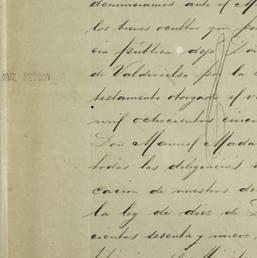 denunciamos ante el M
los bienes ocultos que p
cia pública dejó Don
de Valdivielso por la
testamento otorgado el v
mil ochocientos cinc
Don Manuel Mada
todas las diligencias
cacion de nuestros de
la ley de diez de D
cientos sesenta y nueve